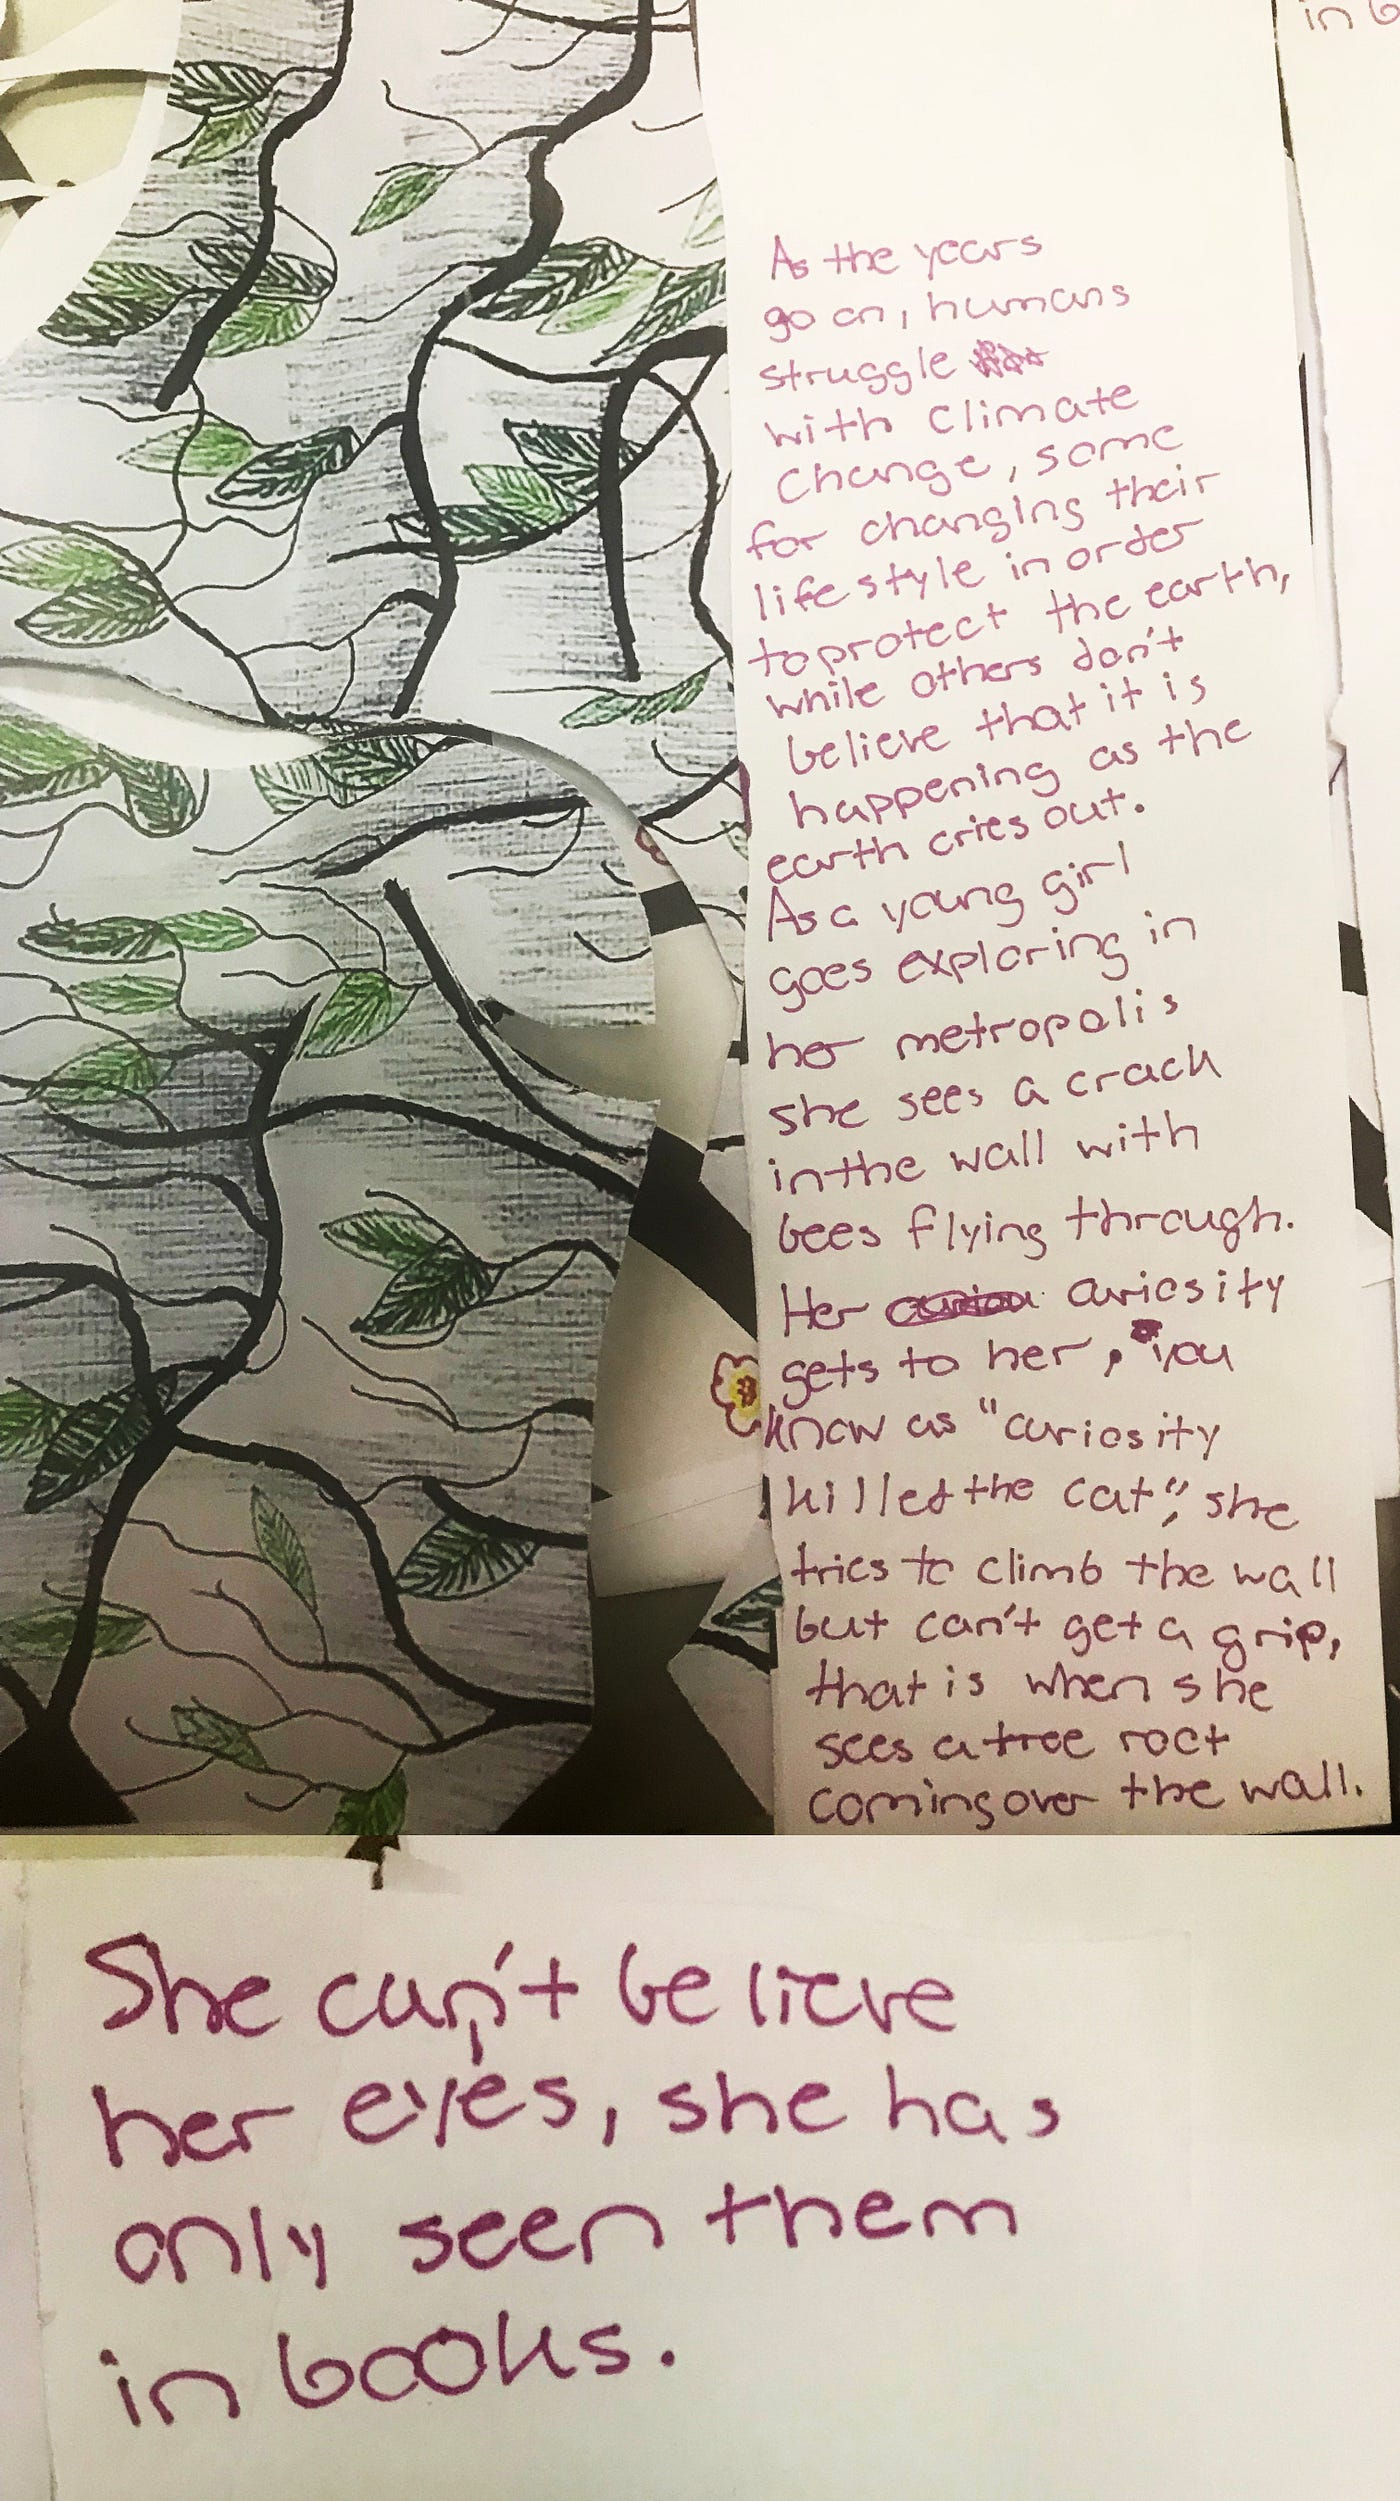 in b
As the years
go on, humans
struggle
with climate
change, some
for changing their
lifestyle in order
to protect the earth,
while others don't
believe that it is
happening as the
earth cries out.
As a young girl
goes exploring in
her metropolis
she sees a crack
in the wall with
bees flying through.
Her curiosity
gets to her, you
know as "curiosity
killed the cat", she
tries to climb the wall
but can't get a grip,
that is when she
sees a tree root
coming over the wall.
She can't believe
her eyes, she has
only seen them
in books.